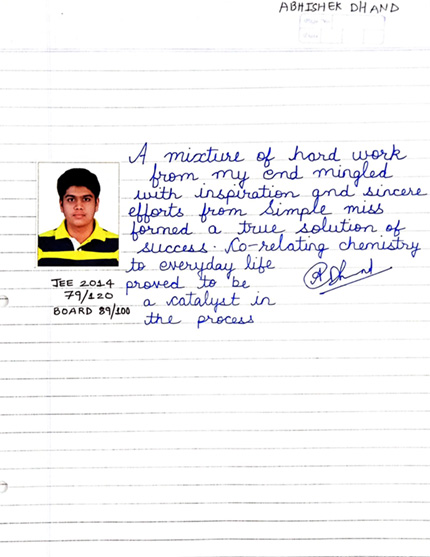 ABHISHEK DHAND
A mixture of hard work
from my end mingled
with inspiration and sincere
efforts from Simple miss
formed a true solution of
success. Co-relating chemistry
to everyday life
proved to be
a catalyst in
the process
JEE 2014
79/120
BOARD 89/100